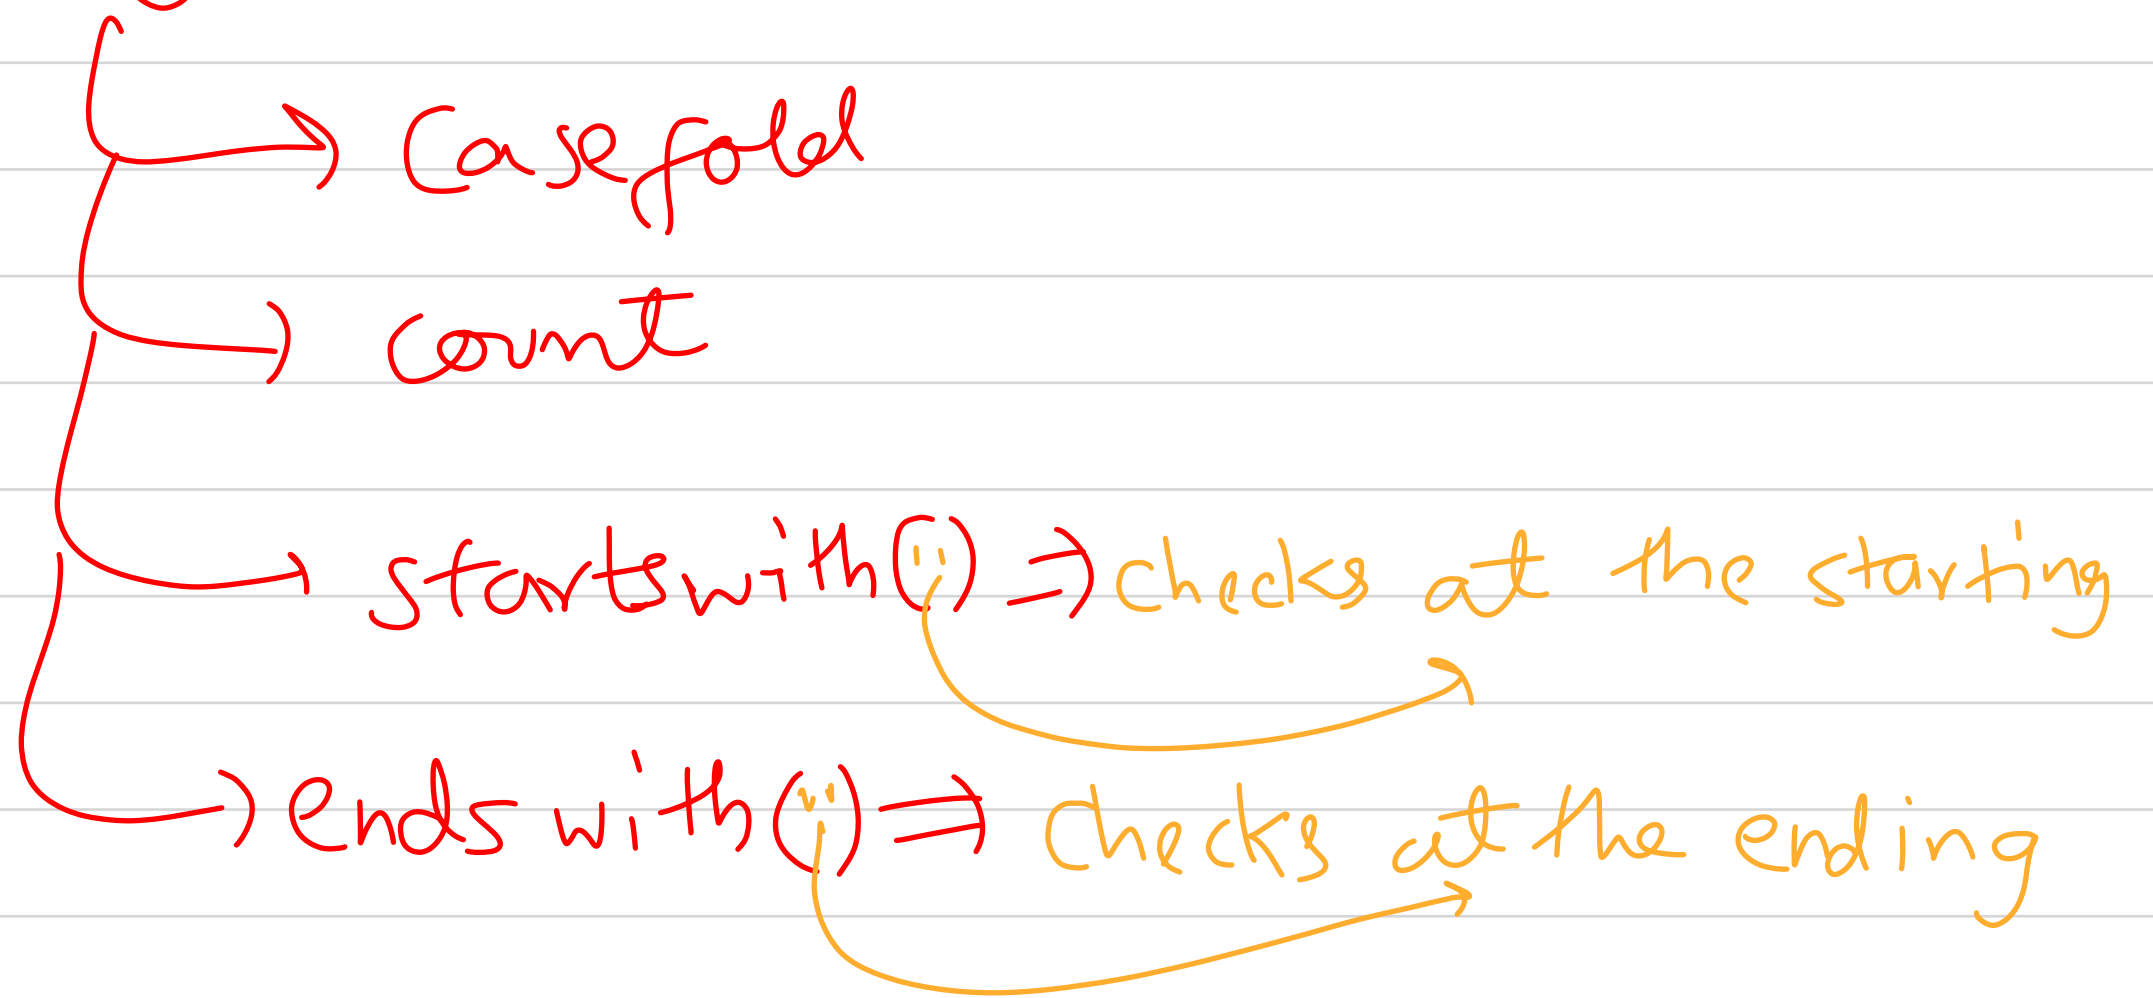 Casefold
Count
startswith("") ⇒ checks at the starting
endswith("") ⇒ checks at the ending